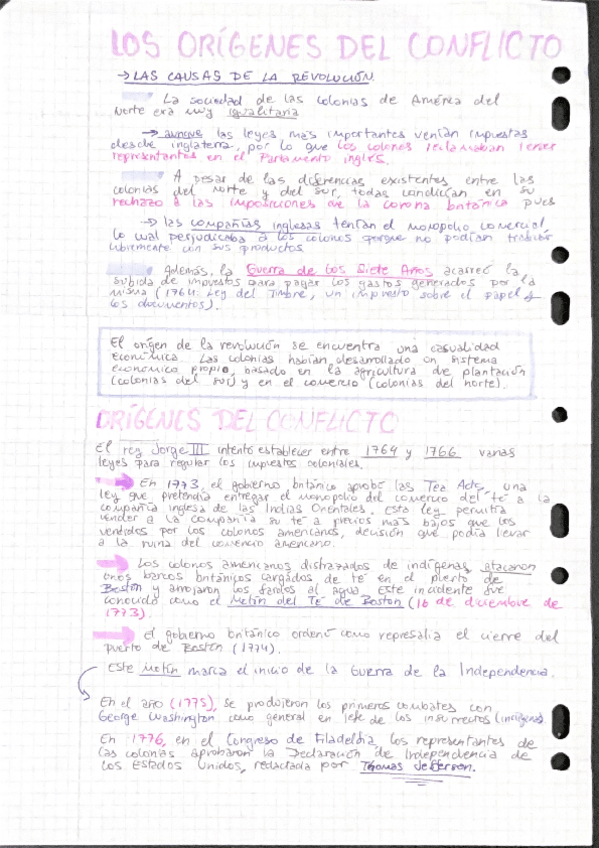 LOS ORÍGENES DEL CONFLICTO
→ LAS CAUSAS DE LA REVOLUCIÓN
La sociedad de las colonias de América del
Norte era muy igualitaria
→ aunque las leyes más importantes venían impuestas
desde inglaterra, por lo que los colonos reclamaban tener
representantes en el Parlamento inglés.
A pesar de las diferencias existentes entre las
colonias del norte y del sur, todas coincidían en su
rechazo a las imposiciones de la corona británica pues
→ las compañías inglesas tenían el monopolio comercial,
lo cual perjudicaba a los colonos porque no podían
libremente con sus productos
Además, la Guerra de los Siete Años acarreó la
subida de impuestos para pagar los gastos generados por la
misma (1764: Ley del Timbre, un impuesto sobre el papel y
los documentos).
El origen de la revolución se encuentra una casualidad
económica. Las colonias habían desarrollado un sistema
económico propio, basado en la agricultura de plantación
(colonias del sur) y en el comercio (colonias del norte).
ORÍGENES DEL CONFLICTO
El rey Jorge III intentó establecer entre 1764 y 1766 varias
leyes para regular los impuestos coloniales.
→ En 1773, el gobierno británico aprobó las Tea Acts, una
ley que pretendía entregar el monopolio del comercio del té a la
compañía inglesa de las Indias Orientales. Esta ley permitía
vender a la compañía su té a precios más bajos que los
vendidos por los colonos americanos, decisión que podía llevar
a la ruina del comercio americano.
→ Los colonos americanos disfrazados de indígenas, atacaron
unos barcos británicos cargados de té en el puerto de
Boston y arrojaron los fardos al agua. Este incidente fue
conocido como el Motín del Té de Boston (16 de diciembre de
1773).
→ El gobierno británico ordenó como represalia el cierre del
puerto de Boston (1774).
Este Motín marca el inicio de la Guerra de la Independencia.
En el año (1775), se produjeron los primeros combates con
George Washington como general en jefe de los insurrectos
En 1776, en el Congreso de Filadelfia, los representantes de
las colonias aprobaron la Declaración de Independencia de
los Estados Unidos, redactada por Thomas Jefferson.